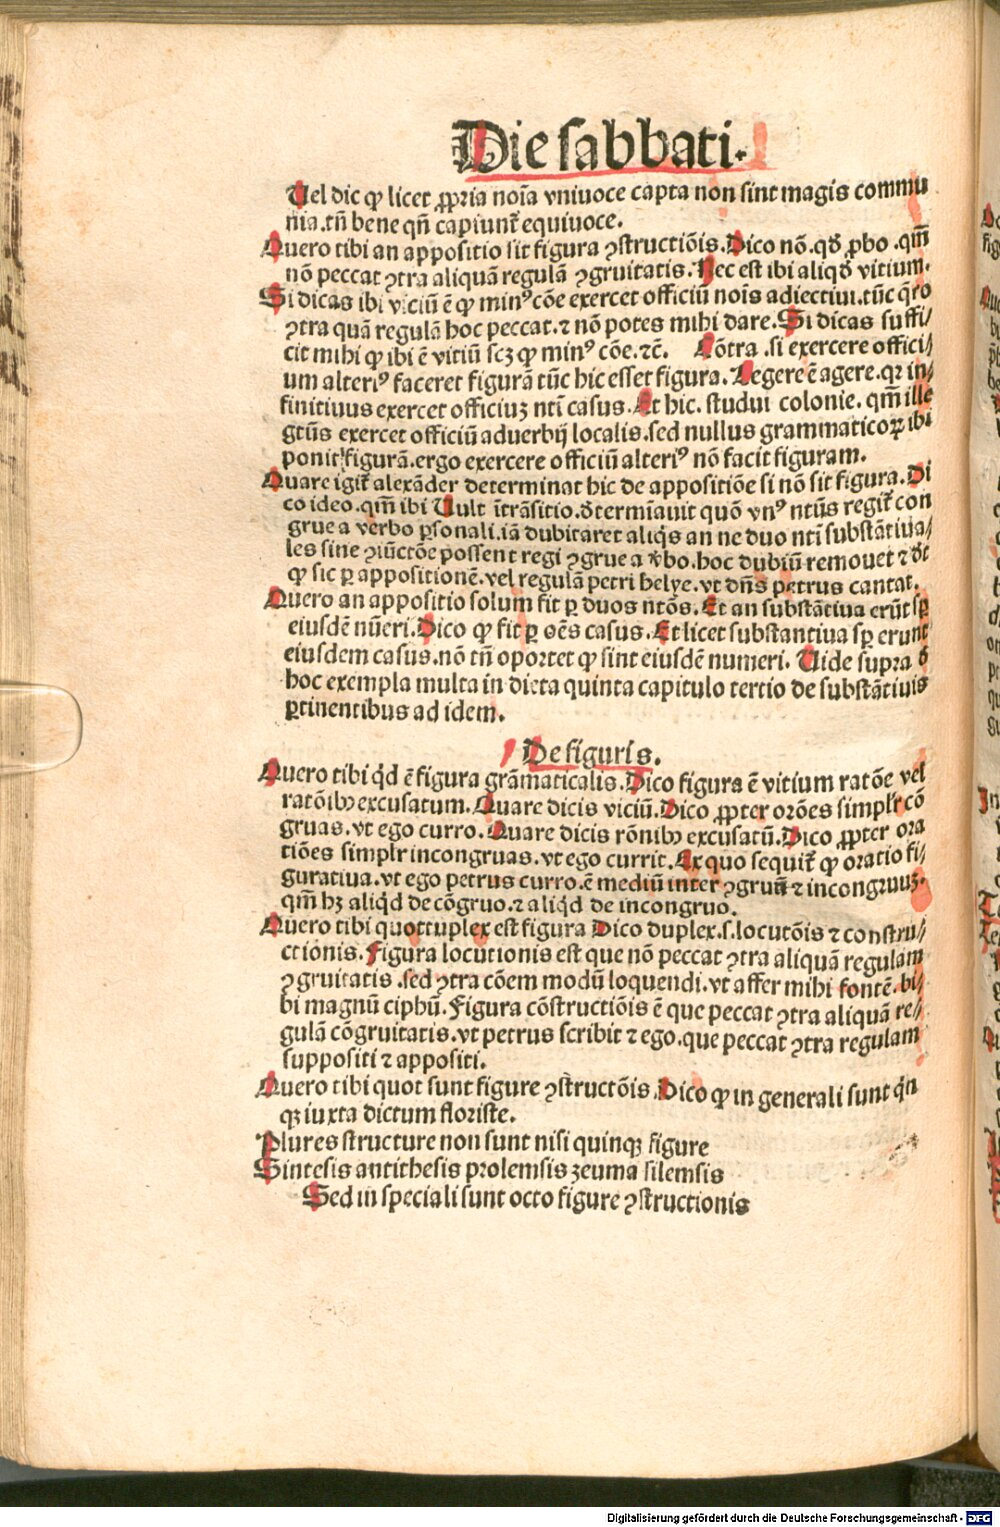 Die sabbati.
Uel dic ꝙ licet ꝓpria noīa vniuoce capta non sint magis commu
nia.tn̄ bene qn̄ capiunt᷑ equiuoce.
Quero tibi an appositio sit figura ꝯstructiōis.Dico nō.qd̄ ꝓbo .qm̄
nō peccat ꝯtra aliquā regulā ꝯgruitatis.Nec est ibi aliqd̄ vitium.
Si dicas ibi viciū ē ꝙ minꝰ cōe exercet officiū nois adiectiui.tūc q̄ro
ꝯtra quā regulā hoc peccat.⁊ nō potes mihi dare.Si dicas suffi/
cit mihi ꝙ ibi ē vitiū scꝫ ꝙ minꝰ cōe.⁊c̄. Cōtra .si exercere offici/
um alteriꝰ faceret figurā tūc hic esset figura.Legere ē agere.qꝛ in/
finitiuus exercet officiuꝫ nti casus.Et hic. studui colonie. qm̄ ille
gtūs exercet officiū aduerbij localis.sed nullus grammaticoꝝ ibi
ponit figurā.ergo exercere officiū alteriꝰ nō facit figuram.
Quare igit᷑ alexāder determinat hic de appositiōe si nō sit figura.Di
co ideo.qm̄ ibi Uult ītrāsitio.ꝺtermīauit quō vnꝰ ntūs regit᷑ con
grue a verbo ꝑsonali.iā dubitaret aliqs an ne duo nti substātiua/
les sine ꝯiūctōe possent regi ꝯgrue a v̄bo.hoc dubiū remouet ⁊ dt
ꝙ sic ꝑ appositionē.vel regulā petri helye.vt dn̄s petrus cantat.
Quero an appositio solum fit ꝑ duos ntōs.Et an substātiua erūt sꝑ
eiusdē nūeri.Dico ꝙ fit ꝑ oēs casus.Et licet substantiua sꝑ erunt
eiusdem casus.nō tn̄ oportet ꝙ sint eiusdē numeri. Uide supra ꝺ
hoc exempla multa in dieta quinta capitulo tertio de substātiuis
ꝑtinentibus ad idem.
De figuris.
Quero tibi qd ē figura grāmaticalis.Dico figura ē vitium ratōe vel
ratōibꝰ excusatum.Quare dicis viciū.Dico ꝓpter orōes simplr cō
gruas.vt ego curro.Quare dicis rōnibꝰ excusatū.Dico ꝓpter ora
tiōes simplr incongruas.vt ego currit.Ex quo sequit᷑ ꝙ oratio fi/
guratiua.vt ego petrus curro.ē mediū inter ꝯgruū ⁊ incongruuꝫ.
qm̄ hꝫ aliqd de cōgruo.⁊ aliqd de incongruo.
Quero tibi quottuplex est figura Dico duplex.s.locutōis ⁊ constru/
ctionis.Figura locutionis est que nō peccat ꝯtra aliquā regulam
ꝯgruitatis .sed ꝯtra cōem modū loquendi.vt affer mihi fontē.bi/
bi magnū ciphū.Figura cōstructiōis ē que peccat ꝯtra aliquā re/
gulā cōgruitatis.vt petrus scribit ⁊ ego.que peccat ꝯtra regulam
suppositi ⁊ appositi.
Quero tibi quot sunt figure ꝯstructōis.Dico ꝙ in generali sunt qn
qꝫ iuxta dictum floriste.
Plures structure non sunt nisi quinqꝫ figure
Sintesis antithesis prolemsis zeuma silemsis
Sed in speciali sunt octo figure ꝯstructionis
Digitalisierung gefördert durch die Deutsche Forschungsgemeinschaft - DFG